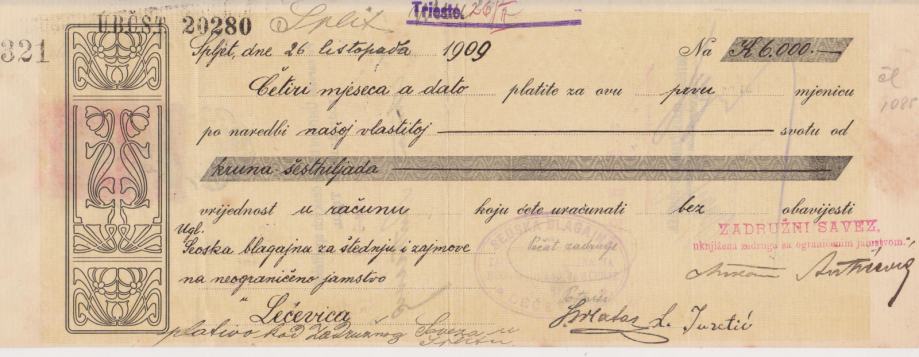 UBČST 20280 Split Trieste 26/II
321
Spljet, dne 26 listopada 1909 Na K 6.000.—
Četiri mjeseca a dato platite za ovu prvu mjenicu
po naredbi našoj vlastitoj svotu od
kruna šesthiljada
vrijednost u računu koju ćete uračunati bez obavijesti
Ugl.
Seoska blagajna za štednju i zajmove
na neograničeno jamstvo
Lećevica
plativo kod Zadružnog Saveza u
Splitu
SEOSKA BLAGAJNA
Pečat zadruge
ZADRUŽNI SAVEZ
uknjižena zadruga sa ograničenim jamstvom.
L. Juretić